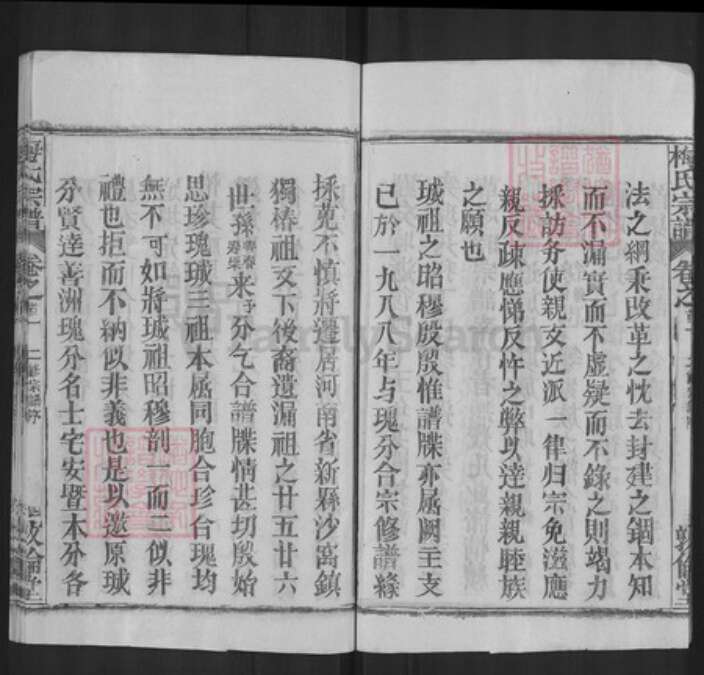 梅氏宗譜
卷之首
敦倫堂
法之綱乘改革之忱去封建之錮本知
而不漏實而不虛疑而不錄之則竭力
採訪务使親支近派一律归宗免滋應
親反疎應悌反忤之弊以达親親睦族
之願也
珹祖之昭穆殷殷惟譜牒亦属闕主支
已於一九八八年与瑰分合宗修譜緣
採莵不慎將遷居河南省新縣沙窩鎮
獨椿祖支下後裔遺漏祖之廿五廿六
世孫來分乞合譜牒情甚切殷始
思珍瑰珹三祖本属同胞合珍合瑰均
無不可如將珹祖昭穆剖一而二似非
禮也拒而不納似非義也是以邀原珹
分賢達善洲瑰分名士宅安暨本分各
梅氏宗譜
卷之首
敦倫堂
FamilySearch